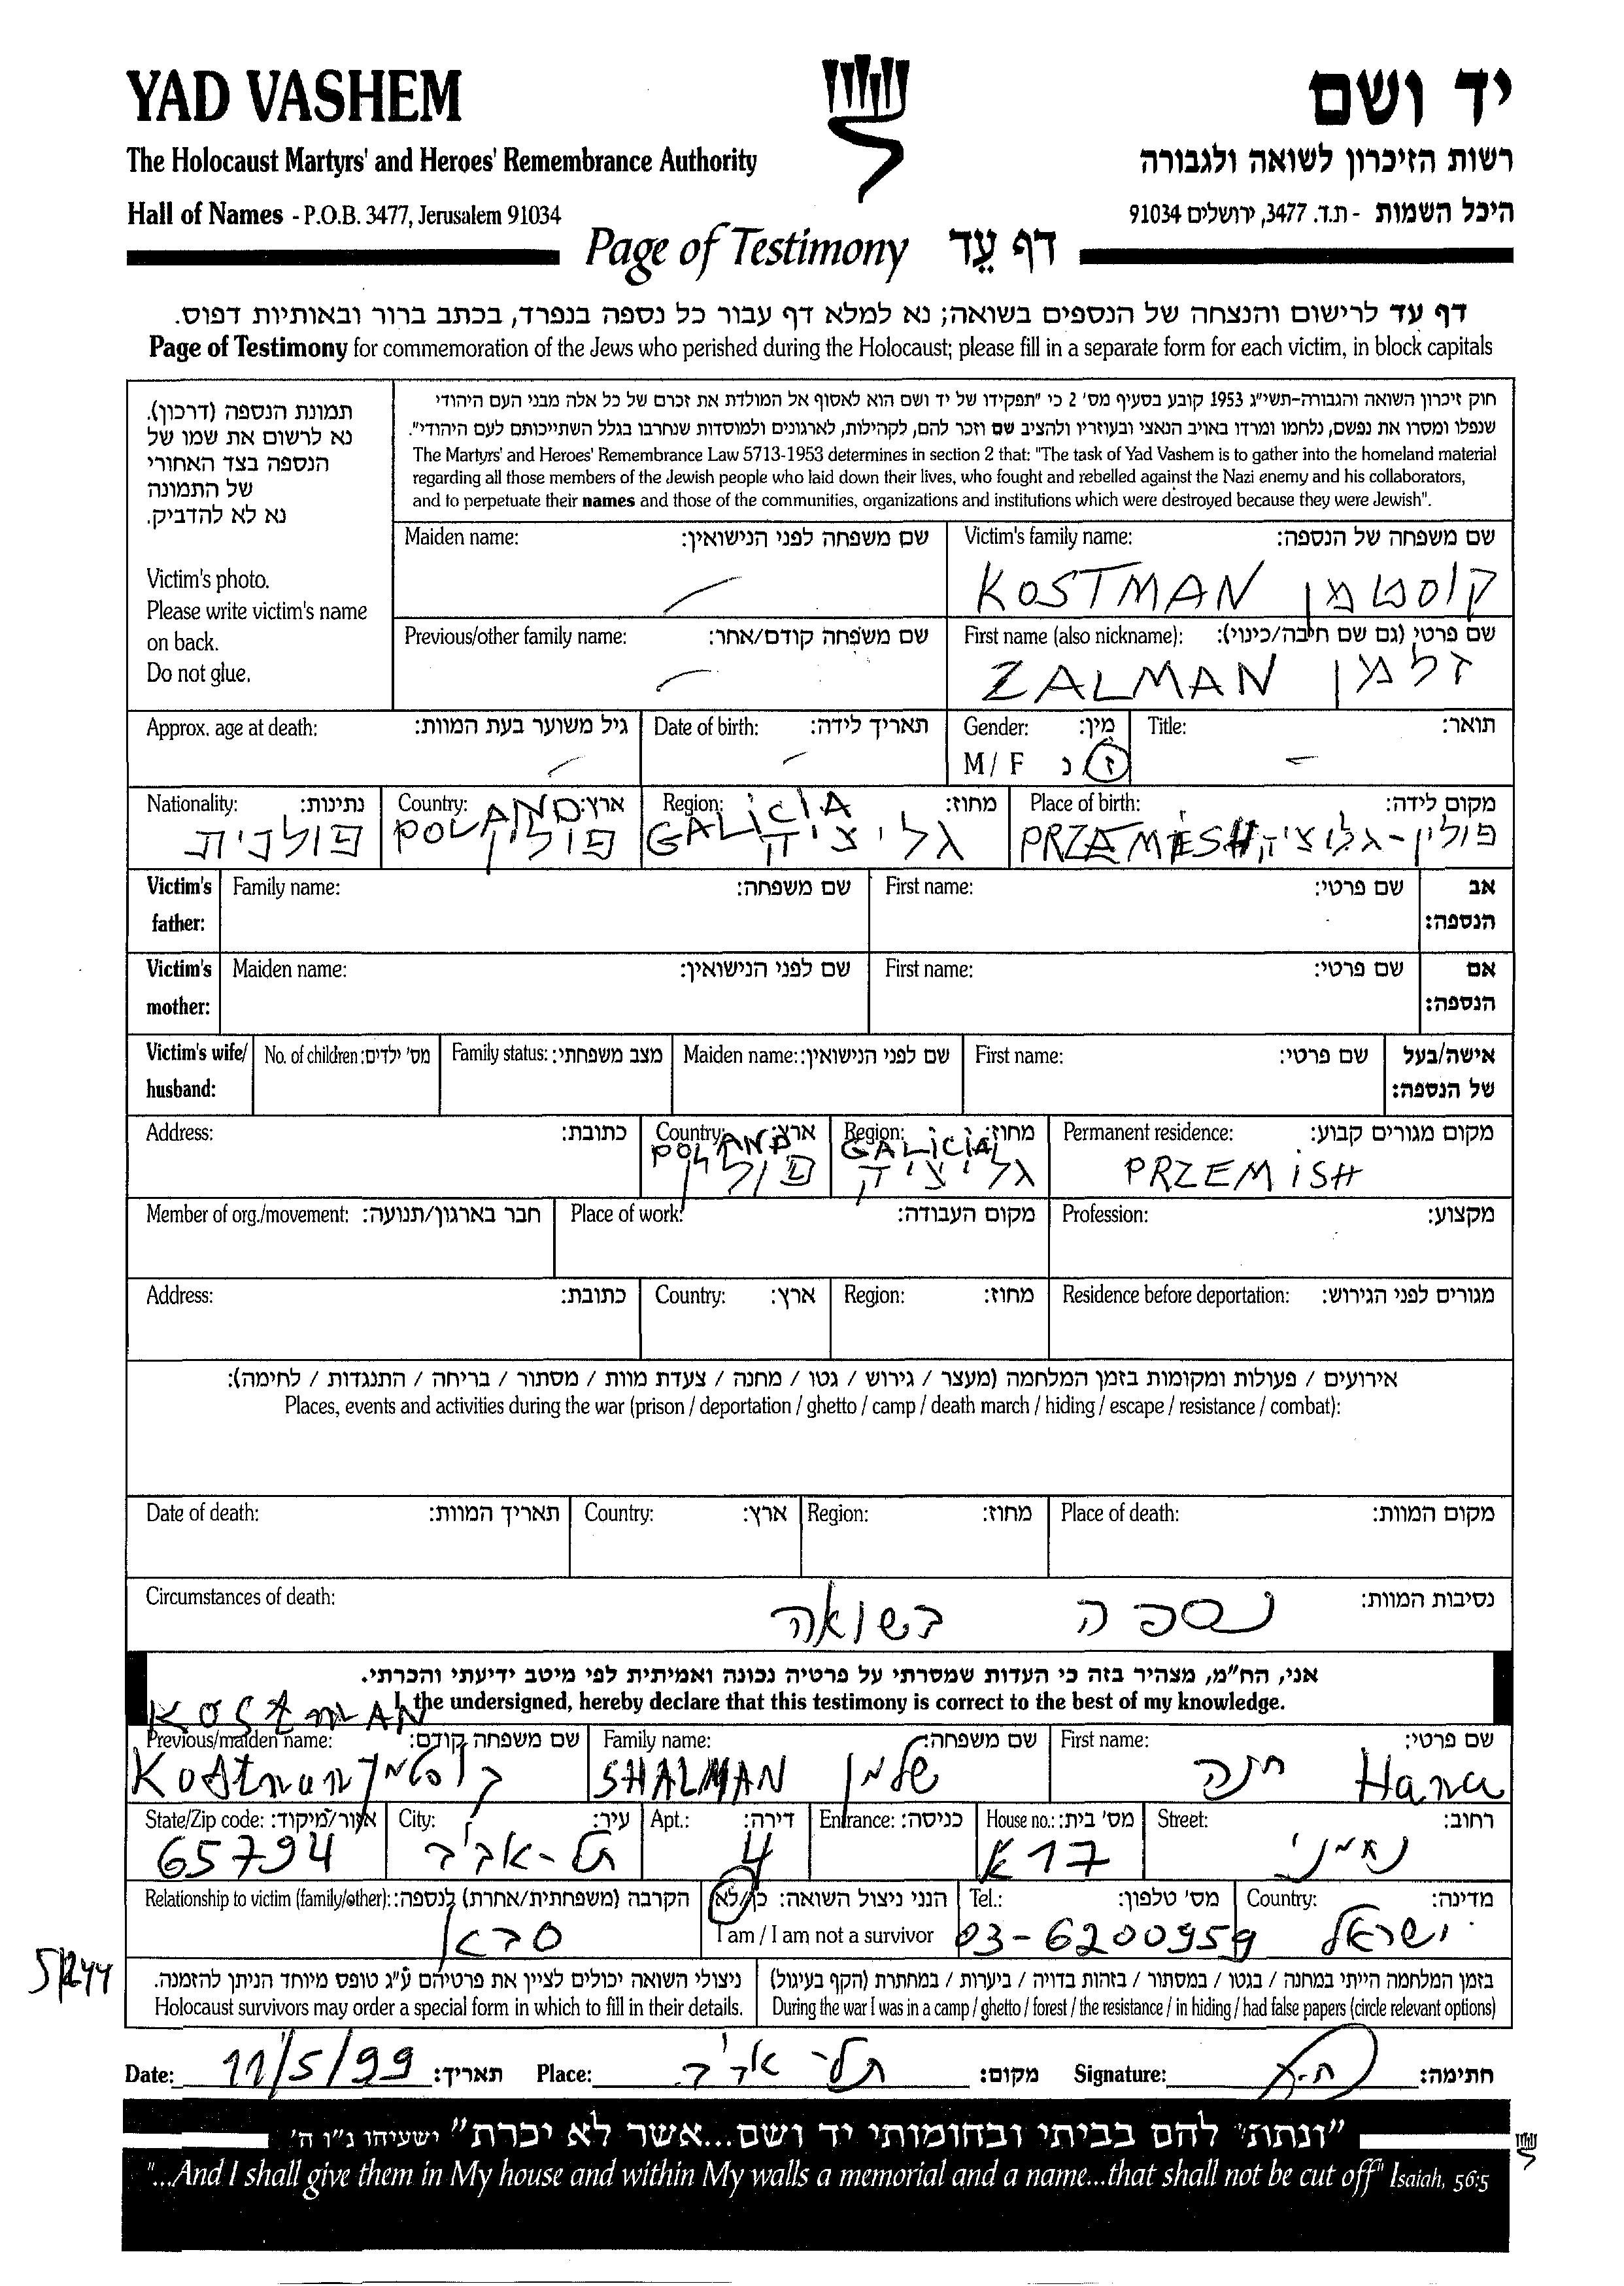 YAD VASHEM
יד ושם
The Holocaust Martyrs' and Heroes' Remembrance Authority
רשות הזיכרון לשואה ולגבורה
Hall of Names - P.O.B. 3477, Jerusalem 91034
היכל השמות - ת.ד. 3477, ירושלים 91034
Page of Testimony דף עֵד
דף עד לרישום והנצחה של הנספים בשואה; נא למלא דף עבור כל נספה בנפרד, בכתב ברור ובאותיות דפוס.
Page of Testimony for commemoration of the Jews who perished during the Holocaust; please fill in a separate form for each victim, in block capitals
תמונת הנספה (דרכון).
נא לרשום את שמו של
הנספה בצד האחורי
של התמונה
נא לא להדביק.
Victim's photo.
Please write victim's name
on back.
Do not glue.
חוק זיכרון השואה והגבורה-תשי"ג 1953 קובע בסעיף מס' 2 כי "תפקידו של יד ושם הוא לאסוף אל המולדת את זכרם של כל אלה מבני העם היהודי
שנפלו ומסרו את נפשם, נלחמו ומרדו באויב הנאצי ובעוזריו ולהציב שם וזכר להם, לקהילות, לארגונים ולמוסדות שנחרבו בגלל השתייכותם לעם היהודי".
The Martyrs' and Heroes' Remembrance Law 5713-1953 determines in section 2 that: "The task of Yad Vashem is to gather into the homeland material
regarding all those members of the Jewish people who laid down their lives, who fought and rebelled against the Nazi enemy and his collaborators,
and to perpetuate their names and those of the communities, organizations and institutions which were destroyed because they were Jewish".
Maiden name: שם משפחה לפני הנישואין:
Victim's family name: שם משפחה של הנספה:
KOSTMAN קוסטמן
Previous/other family name: שם משפחה קודם/אחר:
First name (also nickname): שם פרטי (גם שם חיבה/כינוי):
ZALMAN זלמן
Approx. age at death: גיל משוער בעת המוות:
Date of birth: תאריך לידה:
Gender: מין:
M / F ז נ
Title: תואר:
Nationality: נתינות:
פולנית
Country: ארץ:
POLAND פולין
Region: מחוז:
GALICIA גליציה
Place of birth: מקום לידה:
PRZEMISH פולין-גליציה
Victim's father: Family name: שם משפחה: First name: שם פרטי: אב הנספה:
Victim's mother: Maiden name: שם לפני הנישואין: First name: שם פרטי: אם הנספה:
Victim's wife/ husband: No. of children: מס' ילדים: Family status: מצב משפחתי: Maiden name: שם לפני הנישואין: First name: שם פרטי: אישה/בעל של הנספה:
Address: כתובת:
Country: ארץ:
POLAND פולין
Region: מחוז:
GALICIA גליציה
Permanent residence: מקום מגורים קבוע:
PRZEMISH
Member of org./movement: חבר בארגון/תנועה: Place of work: מקום העבודה: Profession: מקצוע:
Address: כתובת: Country: ארץ: Region: מחוז: Residence before deportation: מגורים לפני הגירוש:
אירועים / פעולות ומקומות בזמן המלחמה (מעצר / גירוש / גטו / מחנה / צעדת מוות / מסתור / בריחה / התנגדות / לחימה):
Places, events and activities during the war (prison / deportation / ghetto / camp / death march / hiding / escape / resistance / combat):
Date of death: תאריך המוות: Country: ארץ: Region: מחוז: Place of death: מקום המוות:
Circumstances of death: נסיבות המוות:
נספה בשואה
אני, הח"מ, מצהיר בזה כי העדות שמסרתי על פרטיה נכונה ואמיתית לפי מיטב ידיעתי והכרתי.
I, the undersigned, hereby declare that this testimony is correct to the best of my knowledge.
KOSTMAN
Previous/maiden name: שם משפחה קודם:
Kostman קוסטמן
Family name: שם משפחה:
SHALMAN שלמן
First name: שם פרטי:
חנה Hana
State/Zip code: אזור/מיקוד:
65794
City: עיר:
תל-אביב
Apt.: דירה:
4
Entrance: כניסה:
House no.: מס' בית:
17 א
Street: רחוב:
נחמני
Relationship to victim (family/other): הקרבה (משפחתית/אחרת) לנספה:
סבא
הנני ניצול השואה: כן/לא
I am / I am not a survivor
Tel.: מס' טלפון:
03-6200959
Country: מדינה:
ישראל
5/244
ניצולי השואה יכולים לציין את פרטיהם ע"ג טופס מיוחד הניתן להזמנה.
Holocaust survivors may order a special form in which to fill in their details.
בזמן המלחמה הייתי במחנה / בגטו / במסתור / בזהות בדויה / ביערות / במחתרת (הקף בעיגול)
During the war I was in a camp / ghetto / forest / the resistance / in hiding / had false papers (circle relevant options)
Date: 11/5/99 תאריך: Place: תל אביב מקום: Signature: חתימה:
"ונתתי להם בביתי ובחומותי יד ושם...אשר לא יכרת" ישעיהו נ"ו ה'
"...And I shall give them in My house and within My walls a memorial and a name...that shall not be cut off" Isaiah, 56:5